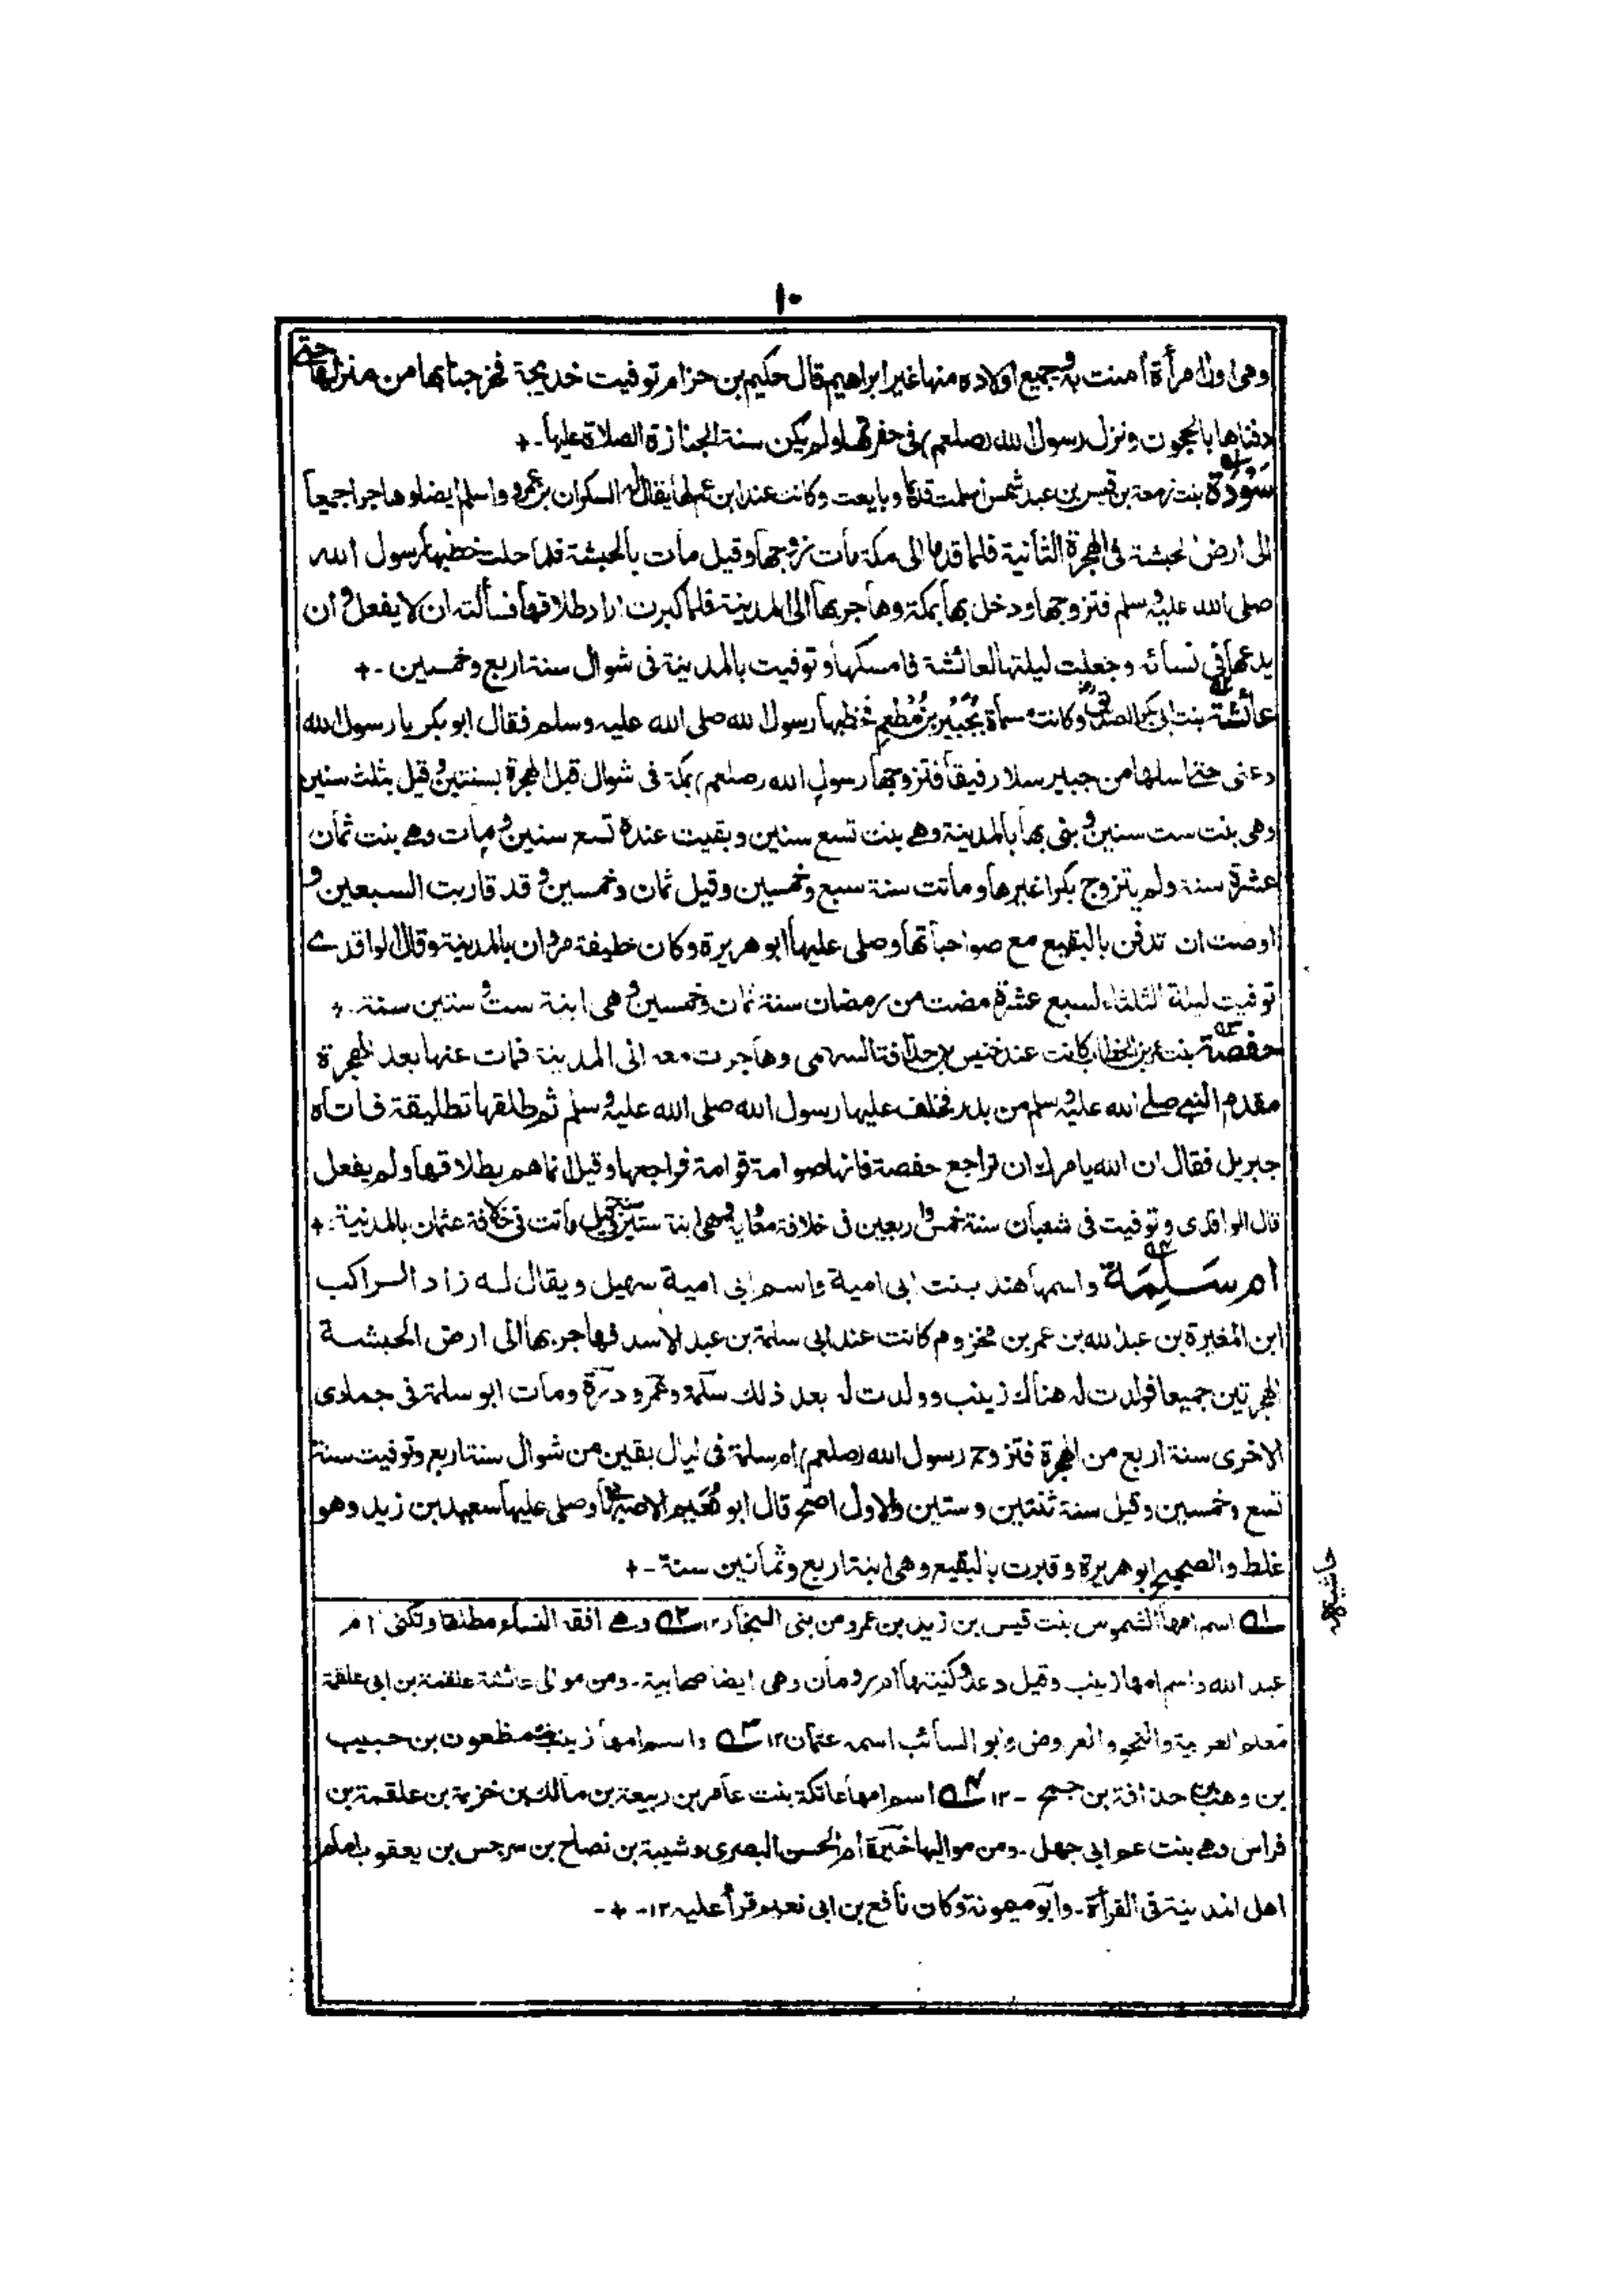 ١٠
وهى اول امرأة امنت به وجميع اولاده منها غير ابراهيم قال حكيم بن حزام توفيت خديجة فخرجنا بها من منزلها حتى
دفناها بالحجون ونزل رسول الله (صلعم) فى حفرتها ولم يكن سنة الجنازة الصلاة عليها - +
سَوْدَة بنت زمعة بن قيس بن عبد شمس اسلمت قديما وبايعت وكانت عند ابن عم لها يقال له السكران بن عمرو واسلم ايضا وهاجرا جميعا
الى ارض الحبشة فى الهجرة الثانية فلما قدما الى مكة مات زوجها وقيل مات بالحبشة فلما حلت خطبها رسول الله
صلى الله عليه وسلم فتزوجها ودخل بها بمكة وهاجر بها الى المدينة فلما كبرت اراد طلاقها فسألته ان لا يفعل و ان
يدعها فى نسائه وجعلت ليلتها لعائشة فامسكها وتوفيت بالمدينة فى شوال سنة اربع وخمسين - +
عائشة بنت ابى بكر الصديق رض وكانت مسماة بجُبَيْر بن مُطْعِم فخطبها رسول الله صلى الله عليه وسلم فقال ابو بكر يا رسول الله
دعنى حتى اسلها من جبير سلا رفيقا فتزوجها رسول الله (صلعم) بمكة فى شوال قبل الهجرة بسنتين وقيل بثلث سنين
وهى بنت ست سنين و بنى بها بالمدينة وهے بنت تسع سنين وبقيت عنده تسع سنين و مات وهے بنت ثمان
عشرة سنة ولم يتزوج بكرا غيرها وماتت سنة سبع وخمسين وقيل ثمان وخمسين و قد قاربت السبعين و
اوصت ان تدفن بالبقيع مع صواحباتها وصلى عليها ابو هريرة وكان خليفة مروان بالمدينة وقال الواقدے
توفيت ليلة الثلثاء لسبع عشرة مضت من رمضان سنة ثمان وخمسين و هى ابنة ست و ستين سنة - +
حفصة بنت عمر بن الخطاب كانت عند خنيس بن حذافة السهمى وهاجرت معه الى المدينة فمات عنها بعد الهجرة
مقدم النبى صلے الله عليه وسلم من بدر فخلف عليها رسول الله صلى الله عليه وسلم ثم طلقها تطليقة فاتاه
جبريل فقال ان الله يامرك ان تراجع حفصة فانها صوامة قوامة فراجعها وقيل انما هم بطلاقها ولم يفعل
قال الواقدى وتوفيت فى شعبان سنة خمس و اربعين فى خلافة معاوية وهى ابنة ستين سنة وقيل ماتت فى خلافة عثمان بالمدينة - +
ام سَلِمَة واسمها هند بنت ابى امية واسم ابى امية سهيل ويقال له زاد الراكب
ابن المغيرة بن عبد الله بن عمر بن مخزوم كانت عند ابى سلمة بن عبد الاسد فهاجر بها الى ارض الحبشة
الهجرتين جميعا فولدت له هناك زينب وولدت له بعد ذلك سلمة وعمر و درة ومات ابو سلمة فى جمادى
الاخرى سنة اربع من الهجرة فتزوج رسول الله (صلعم) ام سلمة فى ليال بقين من شوال سنة اربع وتوفيت سنة
تسع وخمسين وقيل سنة ثنتين وستين والاول اصح قال ابو نُعَيم الاصبهانى وصلى عليها سعيد بن زيد وهو
غلط والصحيح ابو هريرة وقبرت بالبقيع وهى ابنة اربع وثمانين سنة - +
حاشيه
١ه اسم امها الشموس بنت قيس بن زيد بن عمرو من بنى النجار ١٢ ٢ه وهے افقه النساء مطلقا وتكنى ام
عبد الله واسم امها زينب وقيل دعد و كنيتها ام رومان وهى ايضا صحابية - ومن موالى عائشة علقمة بن ابى علقمة
معلم العربية والنحو والعروض وابو السائب اسمه عثمان ١٢ ٣ه واسم امها زينب بنت مظعون بن حبيب
بن وهب بن حذافة بن جمح - ١٢ ٤ه اسم امها عاتكة بنت عامر بن ربيعة بن مالك بن خزيمة بن علقمة بن
فراس وهے بنت عم ابى جهل - ومن مواليها خيرة ام الحسن البصرى وشيبة بن نصاح بن سرجس بن يعقوب امام
اهل المدينة فى القرأة - وابو ميمونة وكان نافع بن ابى نعيم قرأ عليه ١٢ - + -